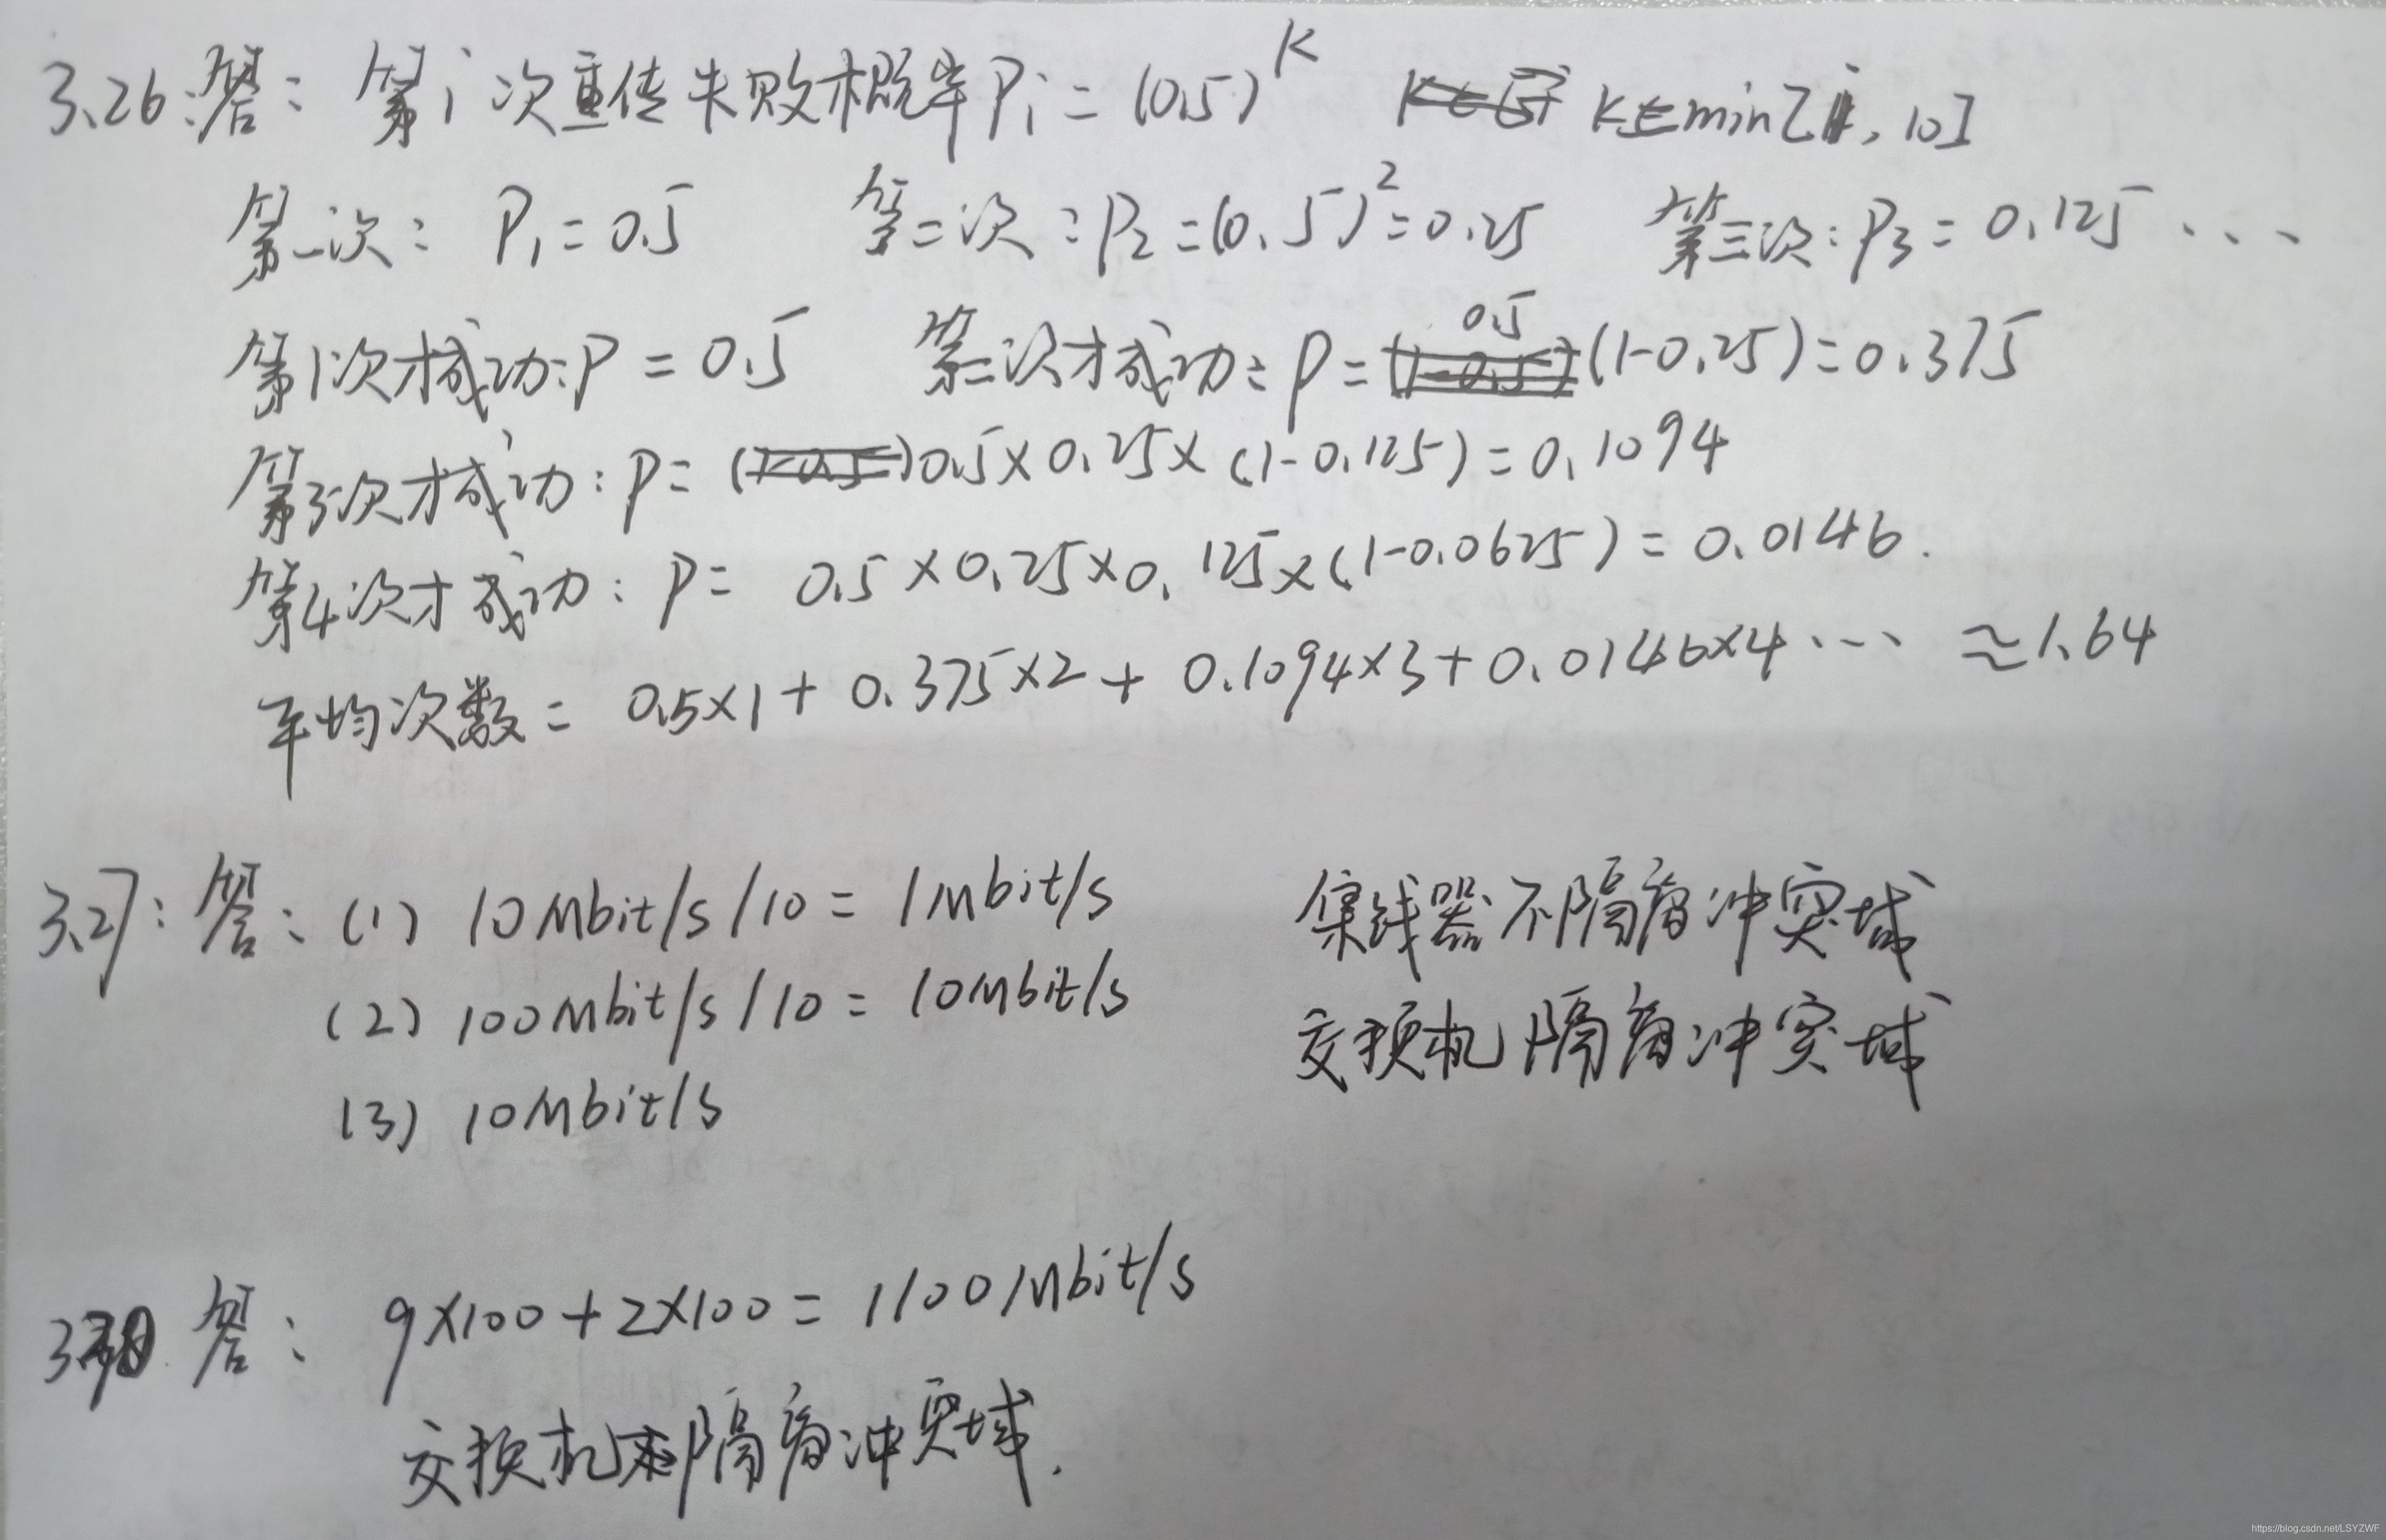 3.26:答: 第i次重传失败概率Pi = (0.5)^K K=min[i, 10]
第一次: P1 = 0.5 第二次: P2 = (0.5)^2 = 0.25 第三次: P3 = 0.125 ...
第1次才成功: P = 0.5 第二次才成功: P = 0.5 (1-0.25) = 0.375
第3次才成功: P = 0.5 × 0.25 × (1-0.125) = 0.1094
第4次才成功: P = 0.5 × 0.25 × 0.125 × (1-0.0625) = 0.0146.
平均次数 = 0.5×1 + 0.375×2 + 0.1094×3 + 0.0146×4 ... ≈ 1.64
3.27: 答: (1) 10Mbit/s /10 = 1Mbit/s 集线器不隔离冲突域
(2) 100Mbit/s /10 = 10Mbit/s 交换机隔离冲突域
(3) 10Mbit/s
答: 9×100 + 2×100 = 1100Mbit/s
交换机 隔离冲突域.
https://blog.csdn.net/LSYZWF